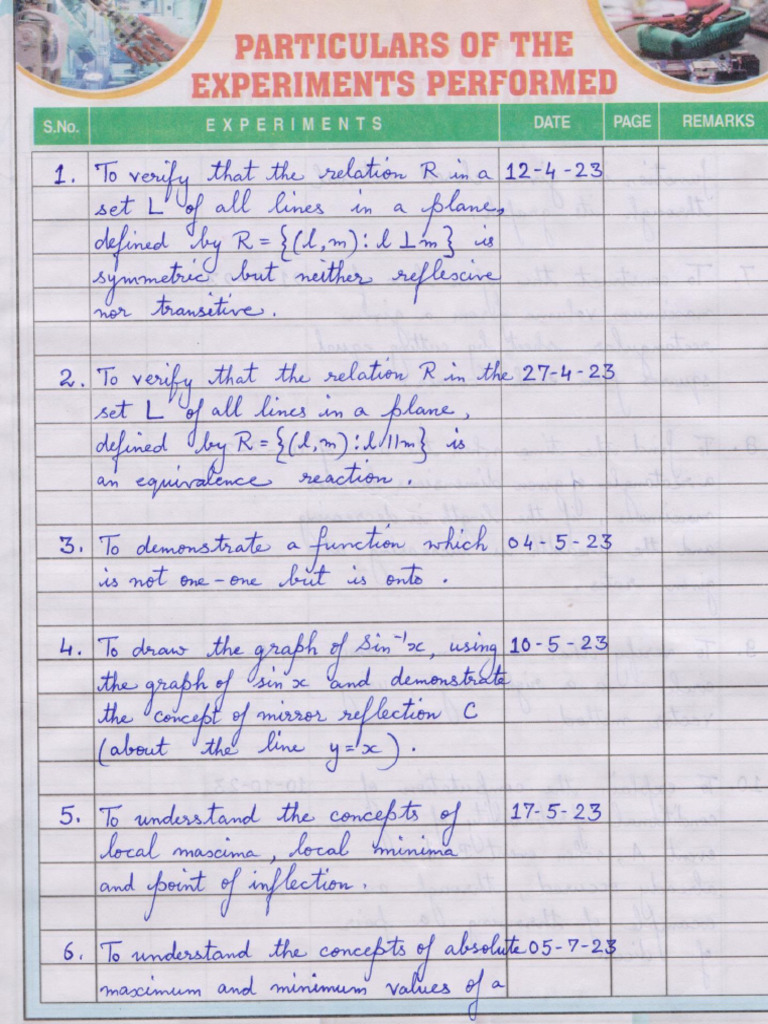 PARTICULARS OF THE
EXPERIMENTS PERFORMED
S.No. EXPERIMENTS DATE PAGE REMARKS
1. To verify that the relation R in a 12-4-23
set L of all lines in a plane,
defined by R = {(l,m) : l ⊥ m} is
symmetric but neither reflexive
nor transitive.
2. To verify that the relation R in the 27-4-23
set L of all lines in a plane,
defined by R = {(l,m) : l || m} is
an equivalence reaction.
3. To demonstrate a function which 04-5-23
is not one-one but is onto.
4. To draw the graph of Sin⁻¹x, using 10-5-23
the graph of sin x and demonstrate
the concept of mirror reflection C
(about the line y=x).
5. To understand the concepts of 17-5-23
local maxima, local minima
and point of inflection.
6. To understand the concepts of absolute 05-7-23
maximum and minimum values of a